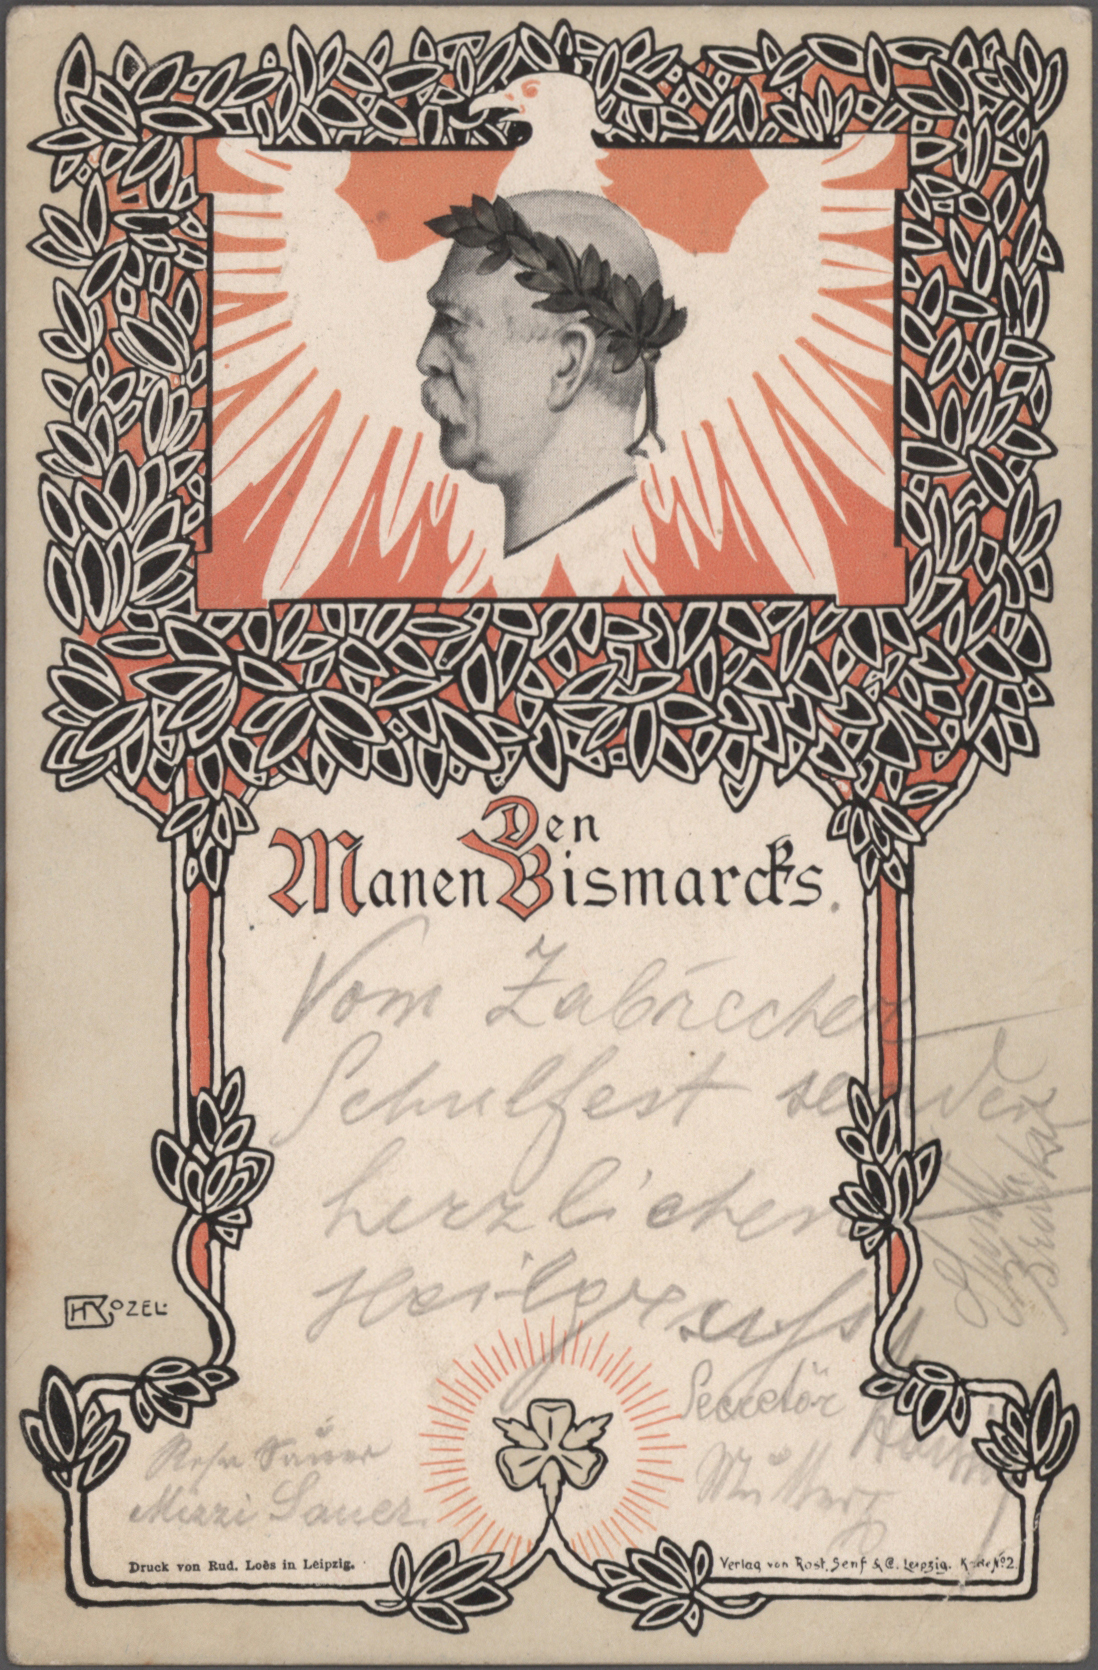 Den
Manen Bismarcks.
Vom
Schulfest senden
herzlichen
Heilgruß
HKOZEL
Secretär
Sauer
Mizzi Sauer
Druck von Rud. Loës in Leipzig.
Verlag von Rost, Senf & C°. Leipzig. Karte № 2.